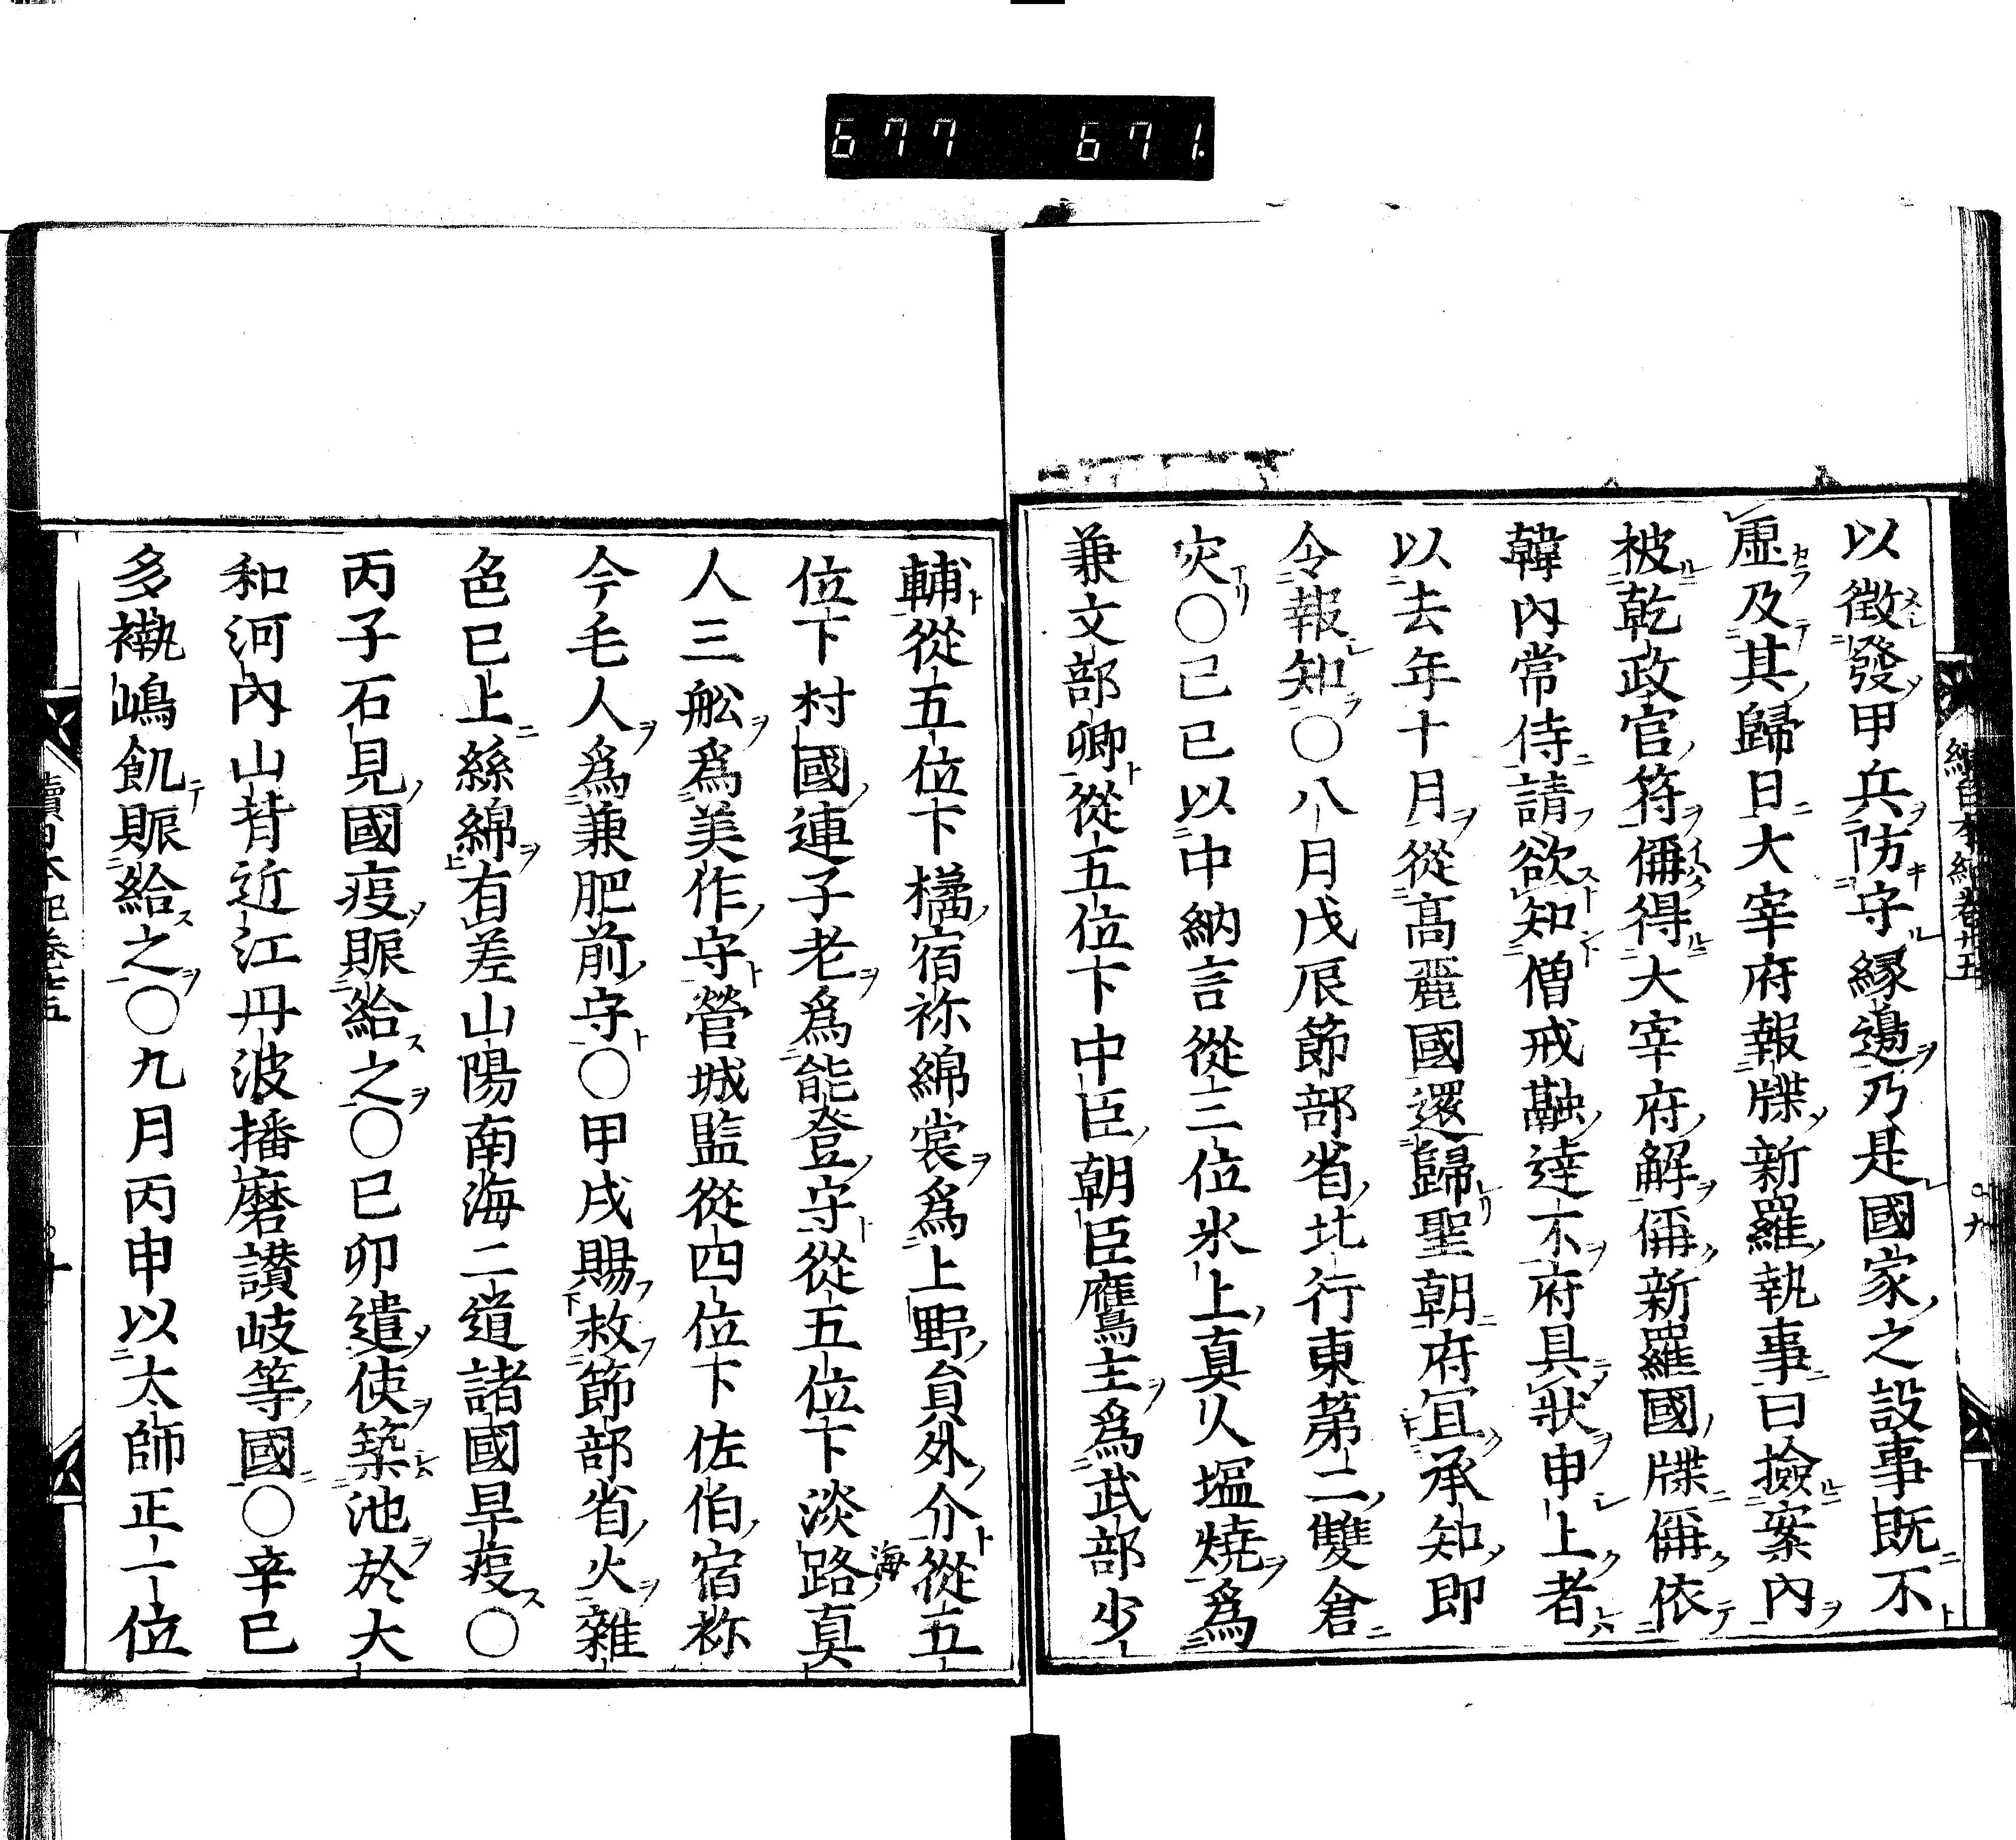 677 671.
以徴發甲兵防守縁邊乃是國家之設事既不
虚及其歸日大宰府報牒新羅執事曰撿案內
被乾政官符偁得大宰府解偁新羅國牒偁依
韓內常侍請欲知僧戒融達不府具狀申上者
以去年十月從高麗國還歸聖朝府冝承知即
令報知〇八月戊辰節部省北行東第二雙倉
灾〇己巳以中納言從三位氷上真人塩燒爲
兼文部卿從五位下中臣朝臣鷹主爲武部少
輔從五位下橘宿祢綿裳爲上野員外介從五
位下村國連子老爲能登守從五位下淡路真
海
人三舩爲美作守營城監從四位下佐伯宿祢
今毛人爲兼肥前守〇甲戌賜救節部省火雜
色已上絲綿有差山陽南海二道諸國旱疫〇
丙子石見國疫賑給之〇己卯遣使築池於大
和河內山背近江丹波播磨讃岐等國〇辛巳
多褹嶋飢賑給之〇九月丙申以太師正一位